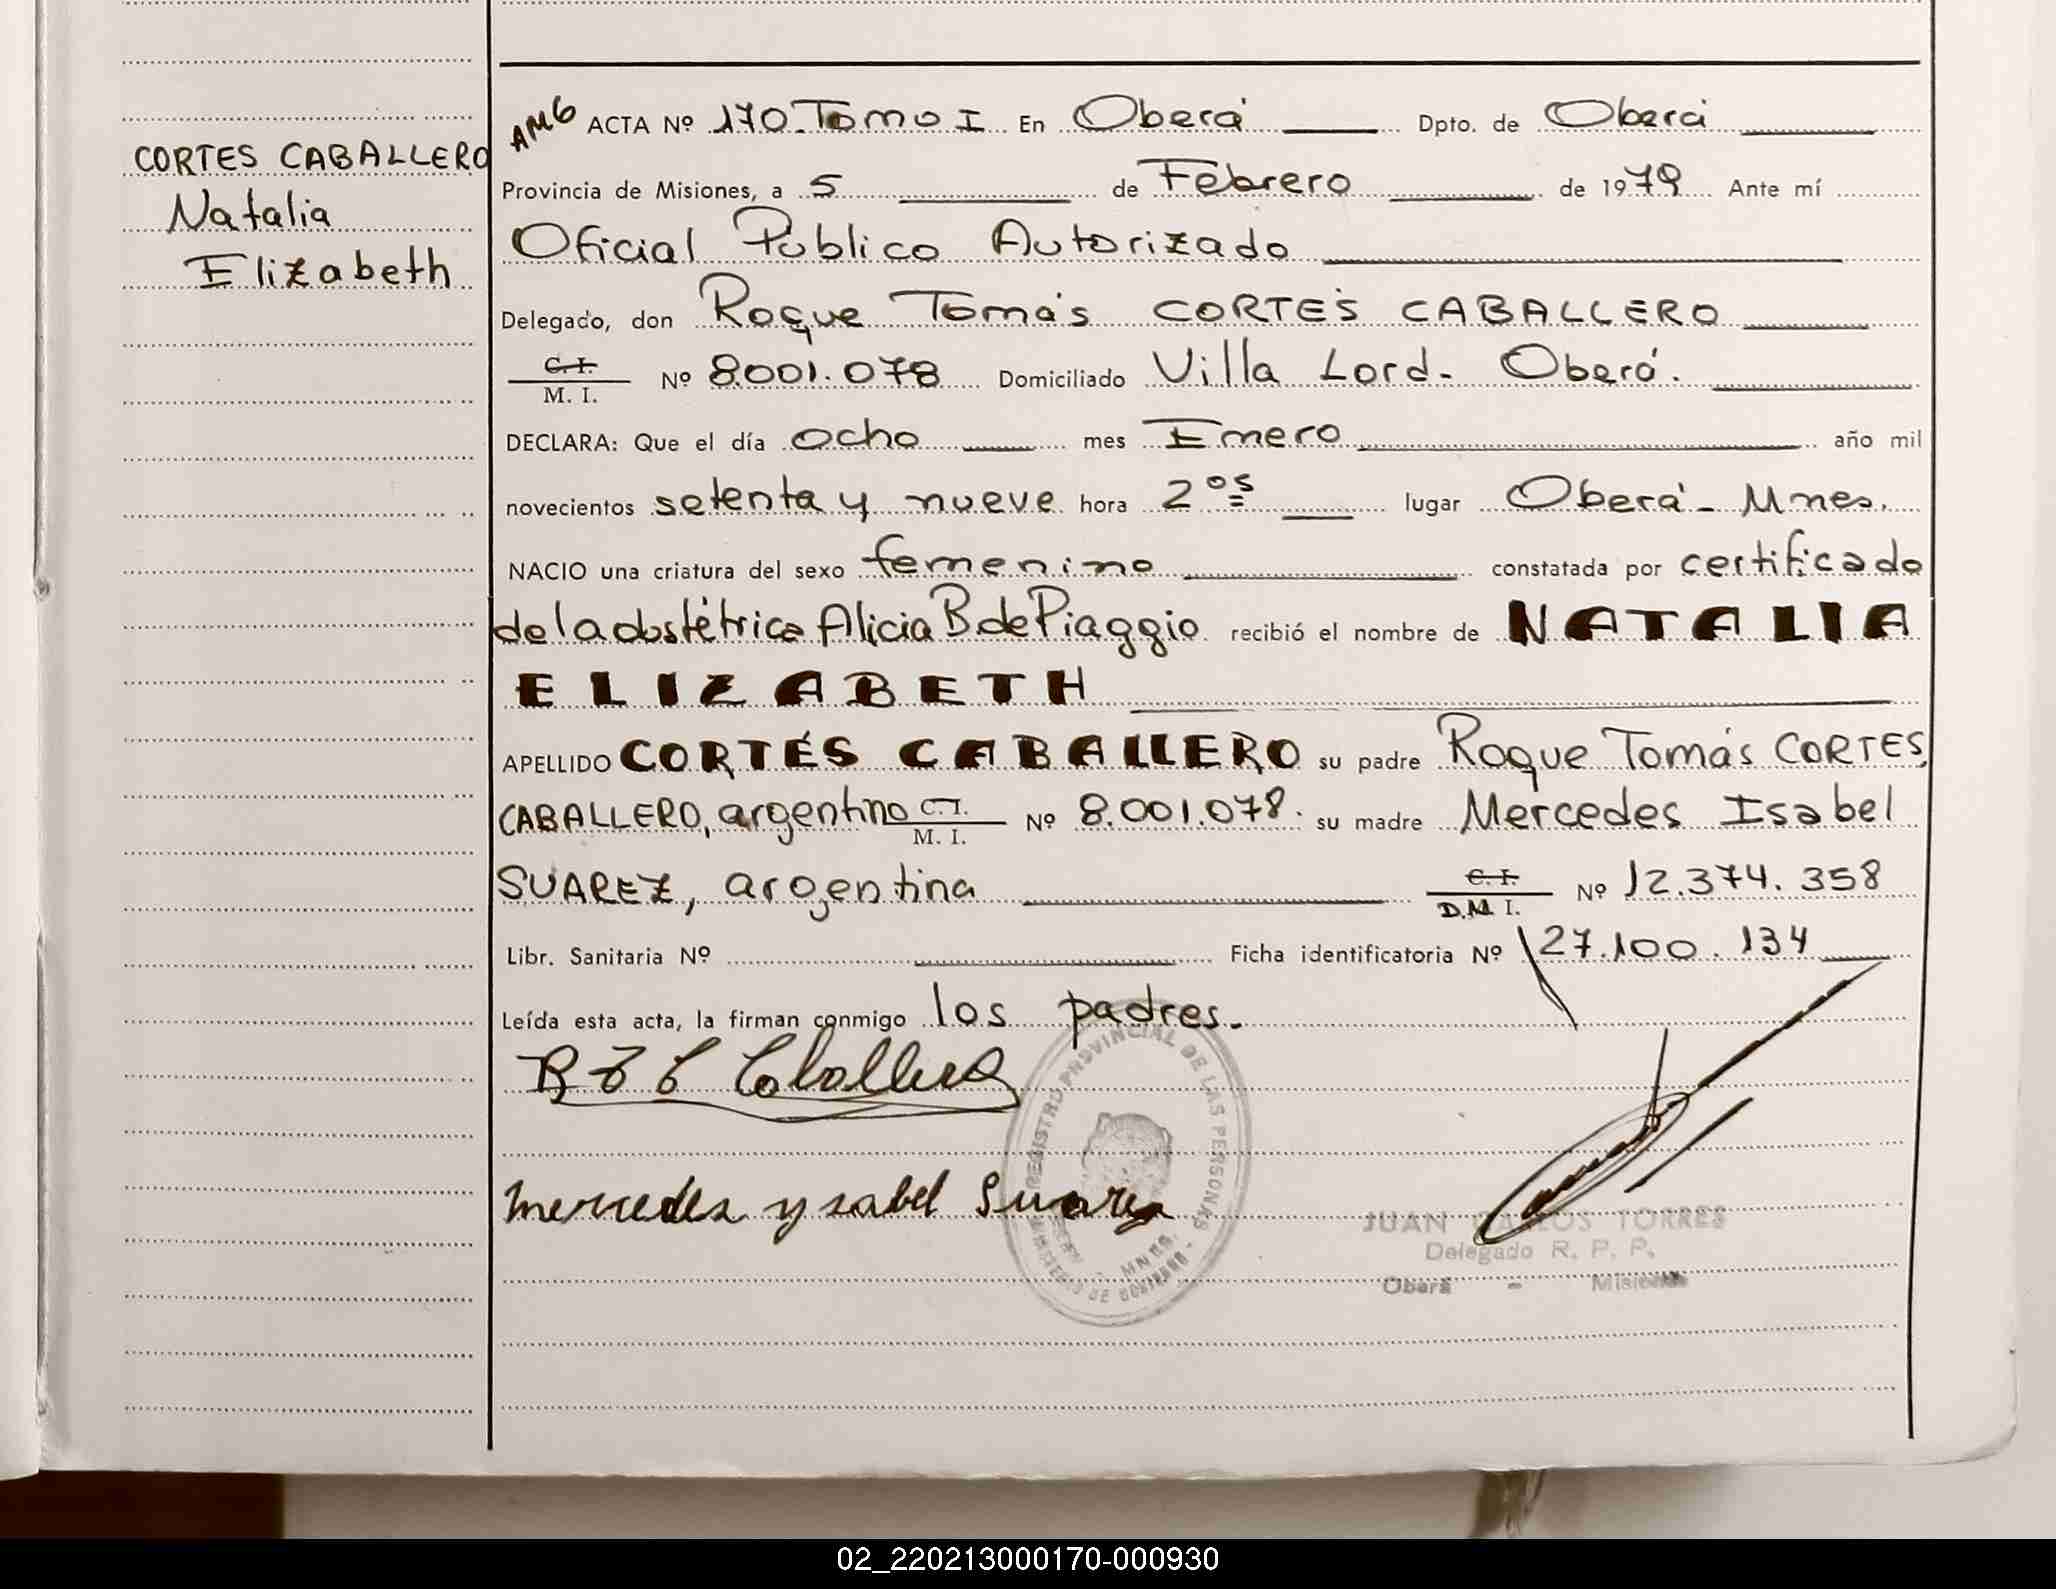 CORTES CABALLERO
Natalia
Elizabeth
AMG ACTA Nº 170.Tomo I En Oberá Dpto. de Oberá
Provincia de Misiones, a 5 de Febrero de 1979 Ante mí
Oficial Público Autorizado
Delegado, don Roque Tomás CORTÉS CABALLERO
C. I.
M. I. Nº 8.001.078 Domiciliado Villa Lord. Oberá.
DECLARA: Que el día ocho mes Enero año mil
novecientos setenta y nueve hora 2 os lugar Oberá - Mnes.
NACIO una criatura del sexo femenino constatada por certificado
de la obstétrica Alicia B. de Piaggio recibió el nombre de NATALIA
ELIZABETH
APELLIDO CORTÉS CABALLERO su padre Roque Tomás CORTES
CABALLERO, argentino C. I.
M. I. Nº 8.001.078. su madre Mercedes Isabel
SUAREZ, argentina C. I.
D.M I. Nº 12.374.358
Libr. Sanitaria Nº Ficha identificatoria Nº 27.100.134
Leída esta acta, la firman conmigo los padres.
R T C Caballero
mercedes ysabel Suarez
REGISTRO PROVINCIAL DE LAS PERSONAS
MNES.
MINISTERIO DE GOBIERNO
JUAN CARLOS TORRES
Delegado R. P. P.
Oberá - Misiones
02_220213000170-000930